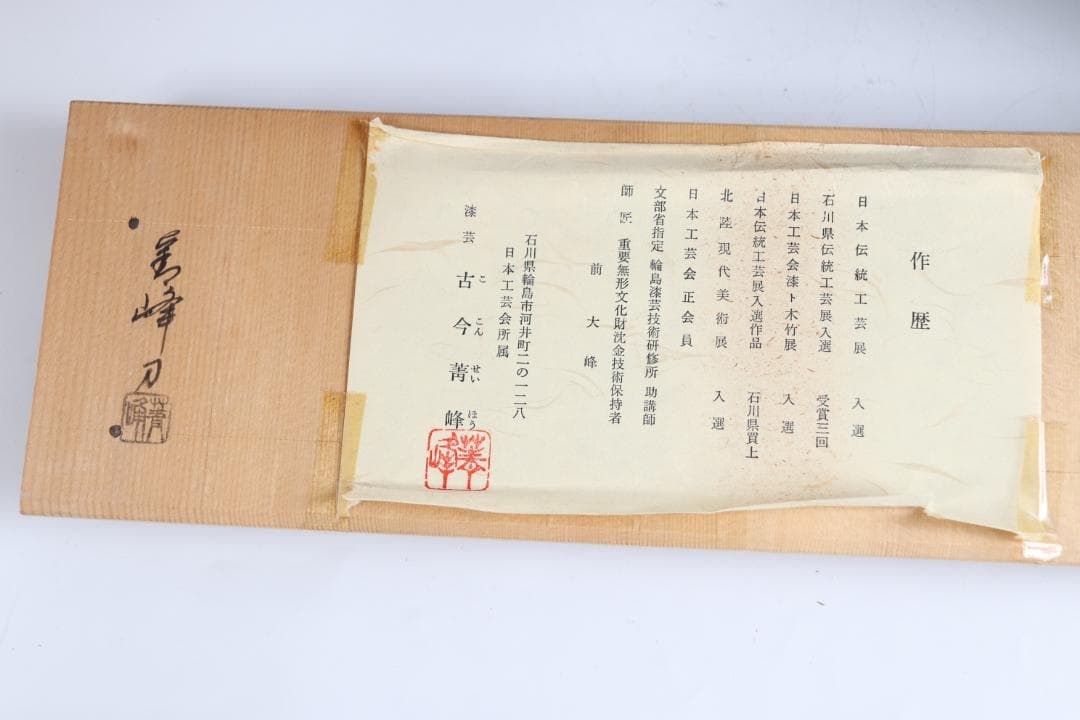 作歴
日本伝統工芸展 入選
石川県伝統工芸展入選 受賞三回
日本工芸会漆ト木竹展 入選
日本伝統工芸展入選作品 石川県買上
北陸現代美術展 入選
日本工芸会正会員
文部省指定 輪島漆芸技術研修所 助講師
師匠 重要無形文化財沈金技術保持者
前大峰
石川県輪島市河井町二の一二八
日本工芸会所属
漆芸 古今菁峰
こ こん せい ほう
菁峰
菁峰刀
菁峰